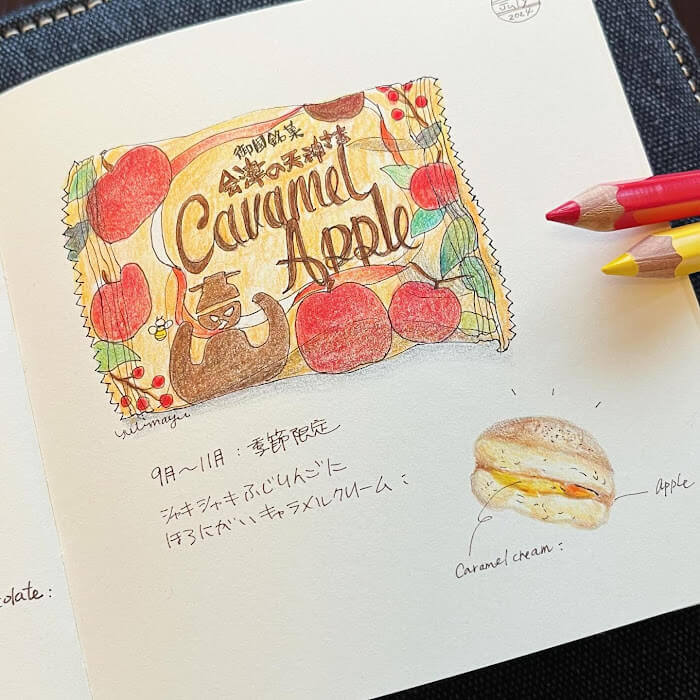 July
2024
御国銘菓
会津の天神さま
Caramel
Apple
9月〜11月：季節限定
シャキシャキふじりんごに
ほろにがいキャラメルクリーム：
apple
Caramel cream:
olate: